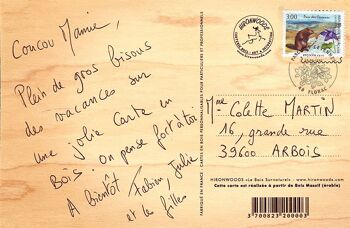 Coucou Mamie,
Plein de gros bisous
des vacances sur
une jolie carte en
Bois. on pense fort à toi
A bientôt Fabien, Julie
et les filles
HIRONWOODS
3,00
48 FLORAC
Mme Colette MARTIN
16, grande rue
39600 ARBOIS
HIRONWOODS «Le Bois Surnaturel» www.hironwoods.com
Cette carte est réalisée à partir de Bois Massif (érable)
3 700823 200003
HIRONWOODS - CARTES EN BOIS PERSONNALISABLES POUR PARTICULIERS ET PROFESSIONNELS